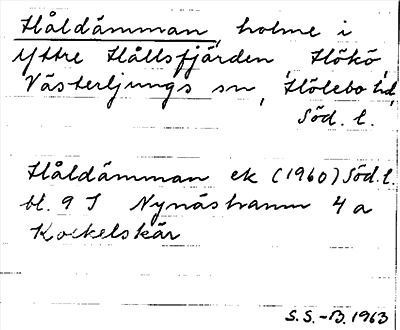 Håldämman, holme i
Yttre Hållsfjärden Hökö,
Västerljungs sn, Hölebo hd,
Söd. l.
Håldämman ek (1960) Söd. l.
bl. 9 I Nynäshamn 4 a
Kockelskär
S.S.-B. 1963